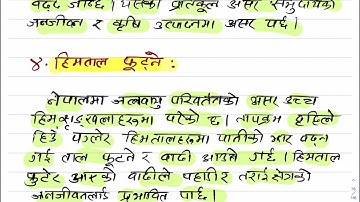 बढ्दै जान्छ । यसको प्रतिकूल असर समुदायको
जनजीवन र कृषि उत्पादनमा असर पार्छ ।
४. हिमताल फुट्ने :
नेपालमा जलवायु परिवर्तनको असर उच्च
हिमशृङ्खलाहरूमा परेको छ । तापक्रम वृद्धिले
हिउँ पग्लेर हिमतालहरूमा पानीको भार बढ्न
गई ताल फुट्ने र बाढी आउने गर्छ । हिमताल
फुटेर आएको बाढीले पहाड र तराई क्षेत्रको
जनजीवनलाई प्रभावित पार्छ ।